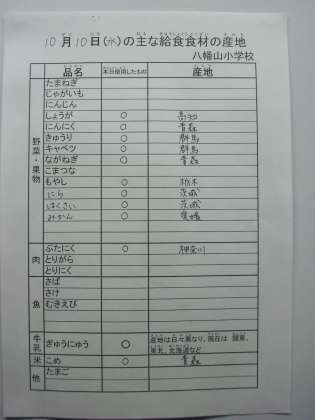 10月10日(水)の主な給食食材の産地
八幡山小学校
品名 本日使用したもの 産地
野菜・果物
たまねぎ
じゃがいも
にんじん
しょうが ○ 高知
にんにく ○ 青森
きゅうり ○ 群馬
キャベツ ○ 群馬
ながねぎ ○ 青森
こまつな
もやし ○ 栃木
にら ○ 茨城
はくさい ○ 茨城
みかん ○ 愛媛
肉
ぶたにく ○ 神奈川
とりがら
とりにく
魚
さば
さけ
むきえび
牛乳 ぎゅうにゅう ○ 産地は日々異なり、現在は 関東、
東北、北海道など
米 こめ ○ 青森
他 たまご